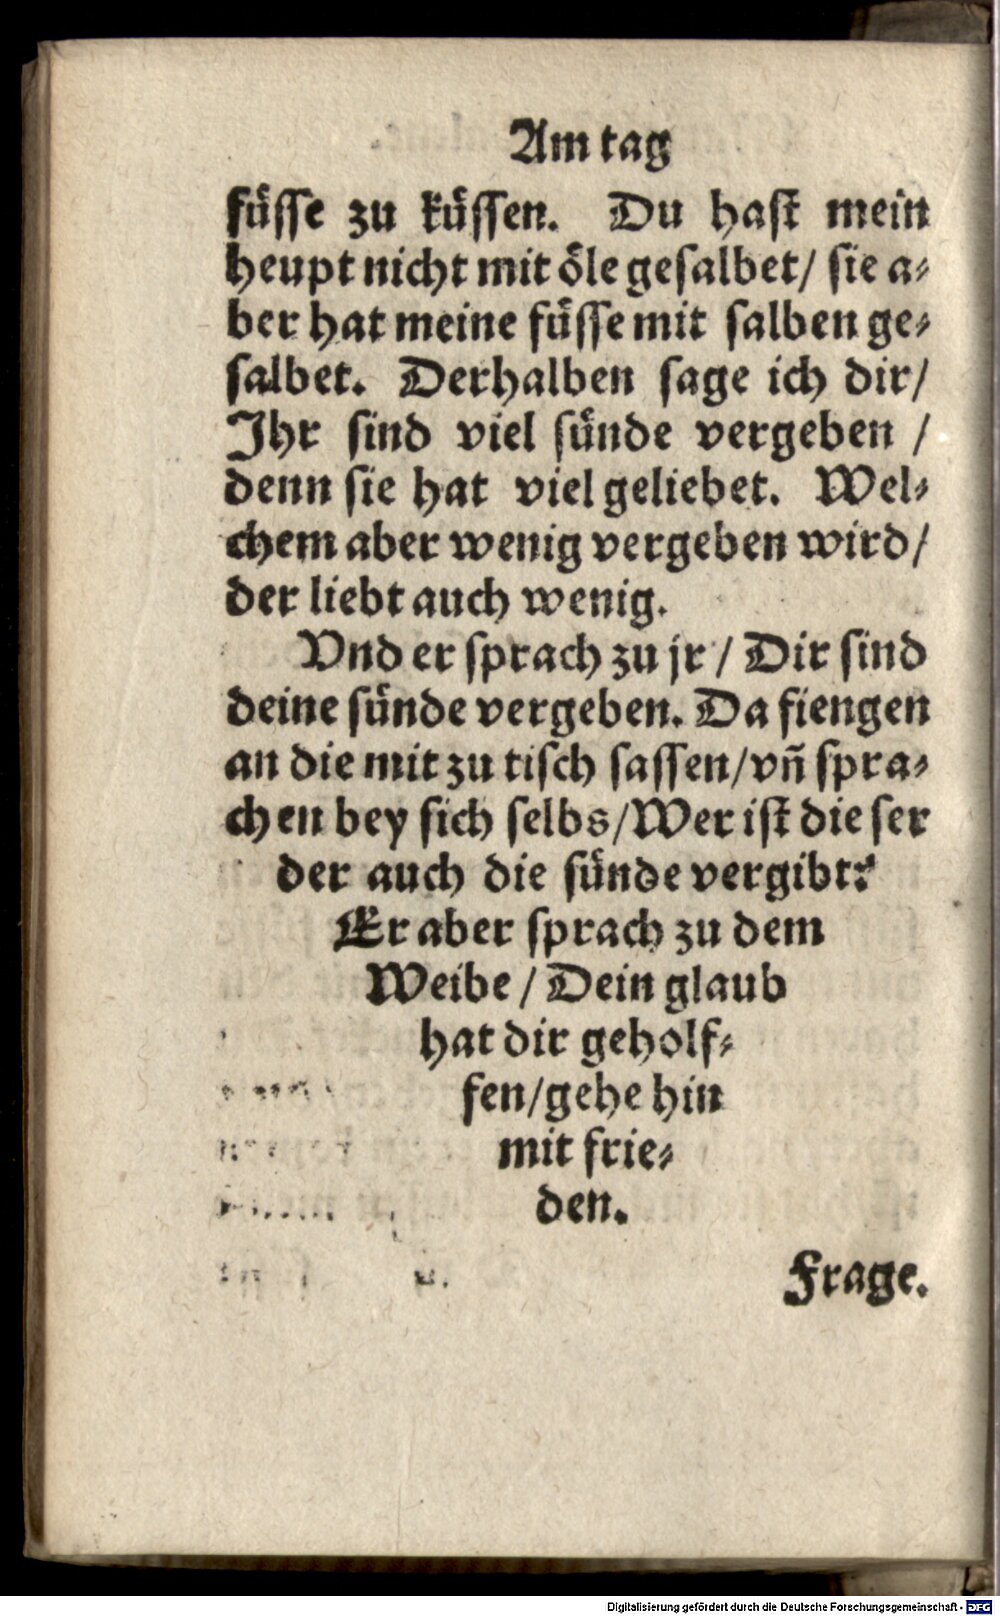 Am tag
füsse zu küssen. Du hast mein
heupt nicht mit öle gesalbet/ sie a⸗
ber hat meine füsse mit salben ge⸗
salbet. Derhalben sage ich dir/
Ihr sind viel sünde vergeben /
denn sie hat viel geliebet. Wel⸗
chem aber wenig vergeben wird/
der liebt auch wenig.
Vnd er sprach zu jr / Dir sind
deine sünde vergeben. Da fiengen
an die mit zu tisch sassen/vñ spra⸗
chen bey sich selbs/Wer ist dieser
der auch die sünde vergibt?
Er aber sprach zu dem
Weibe / Dein glaub
hat dir geholf⸗
fen/gehe hin
mit frie⸗
den.
Frage.
Digitalisierung gefördert durch die Deutsche Forschungsgemeinschaft - DFG